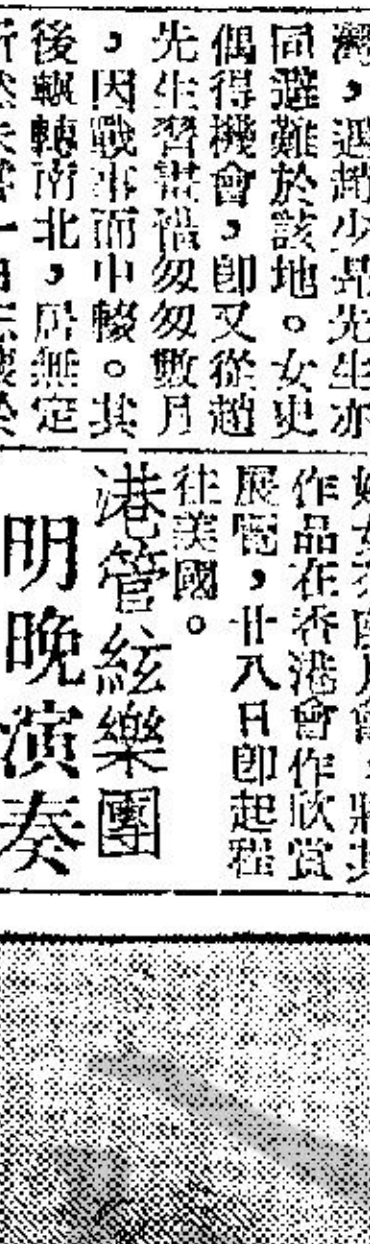 灣，遇趙少昂先生亦
同避難於該地。女史
偶得機會，即又從趙
先生習畫惜匆匆數月
，因戰事而中輟。其
後輾轉南北，居無定
作品在香港會作欣賞
展覽，廿八日即起程
往美國。
港管絃樂團
明晚演奏